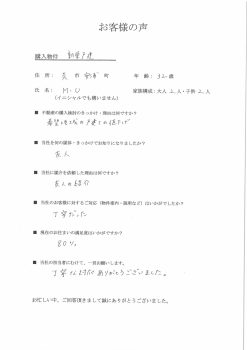 お客様の声
購入物件 新築戸建
住所： 市 町 年齢：32 歳
氏名： M・U 家族構成：大人 2 人・子供 2 人
（イニシャルでも構いません）
■ 不動産の購入検討のきっかけ・理由は何ですか？
希望地域の戸建ての値下げ
■ 当社を何の媒体・きっかけでお知りになりましたか？
友人
■ 当社に媒介を依頼した理由は何ですか？
友人の紹介
■ 当社のお客様に対するご対応（物件案内・説明など）はいかがでしたか？
丁寧だった
■ 現在のお住まいの満足度はいかがですか？
80%
■ 当社の担当者にむけて、一言お願いします。
丁寧な対応ありがとうございました。
お忙しい中、ご回答頂きまして誠にありがとうございました。